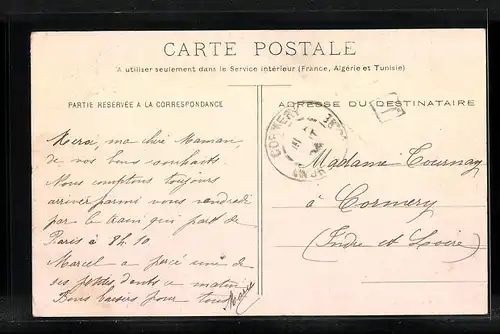 CARTE POSTALE
A utiliser seulement dans le Service intérieur (France, Algérie et Tunisie)
PARTIE RESERVÉE A LA CORRESPONDANCE
ADRESSE DU DESTINATAIRE
T
CORMERY
Merci, ma chère Maman,
de vos bons souhaits.
Nous comptons toujours
arriver parmi vous vendredi
par le train qui part de
Paris à 8h.10
Marcel a percé une de
ses dents ce matin
Bons baisers pour tous
Marie
Madame Tournay
à Cormery
(Indre et Loire)